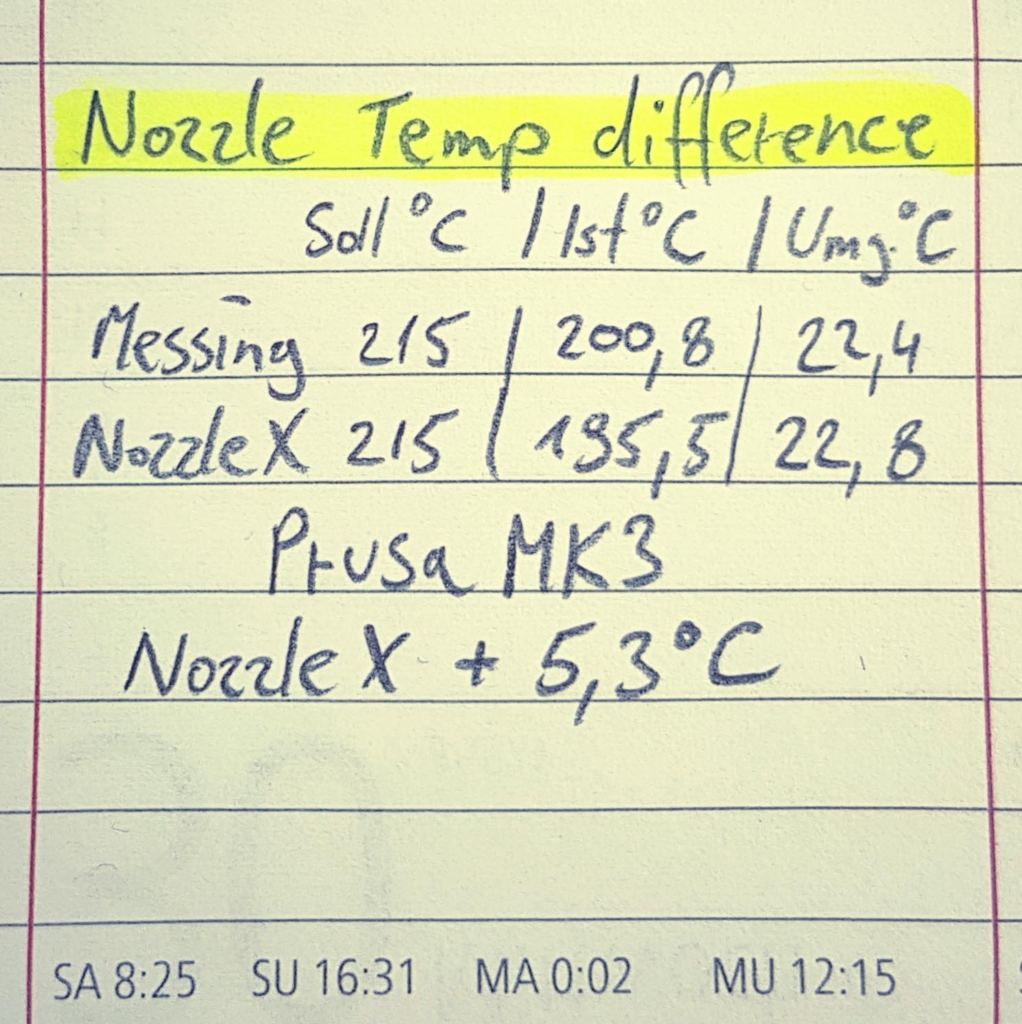 Nozzle Temp difference
Soll °C / Ist °C / Umg. °C
Messing 215 | 200,8 | 22,4
Nozzle X 215 | 195,5 | 22,8
Prusa MK3
Nozzle X + 5,3°C
SA 8:25 SU 16:31 MA 0:02 MU 12:15